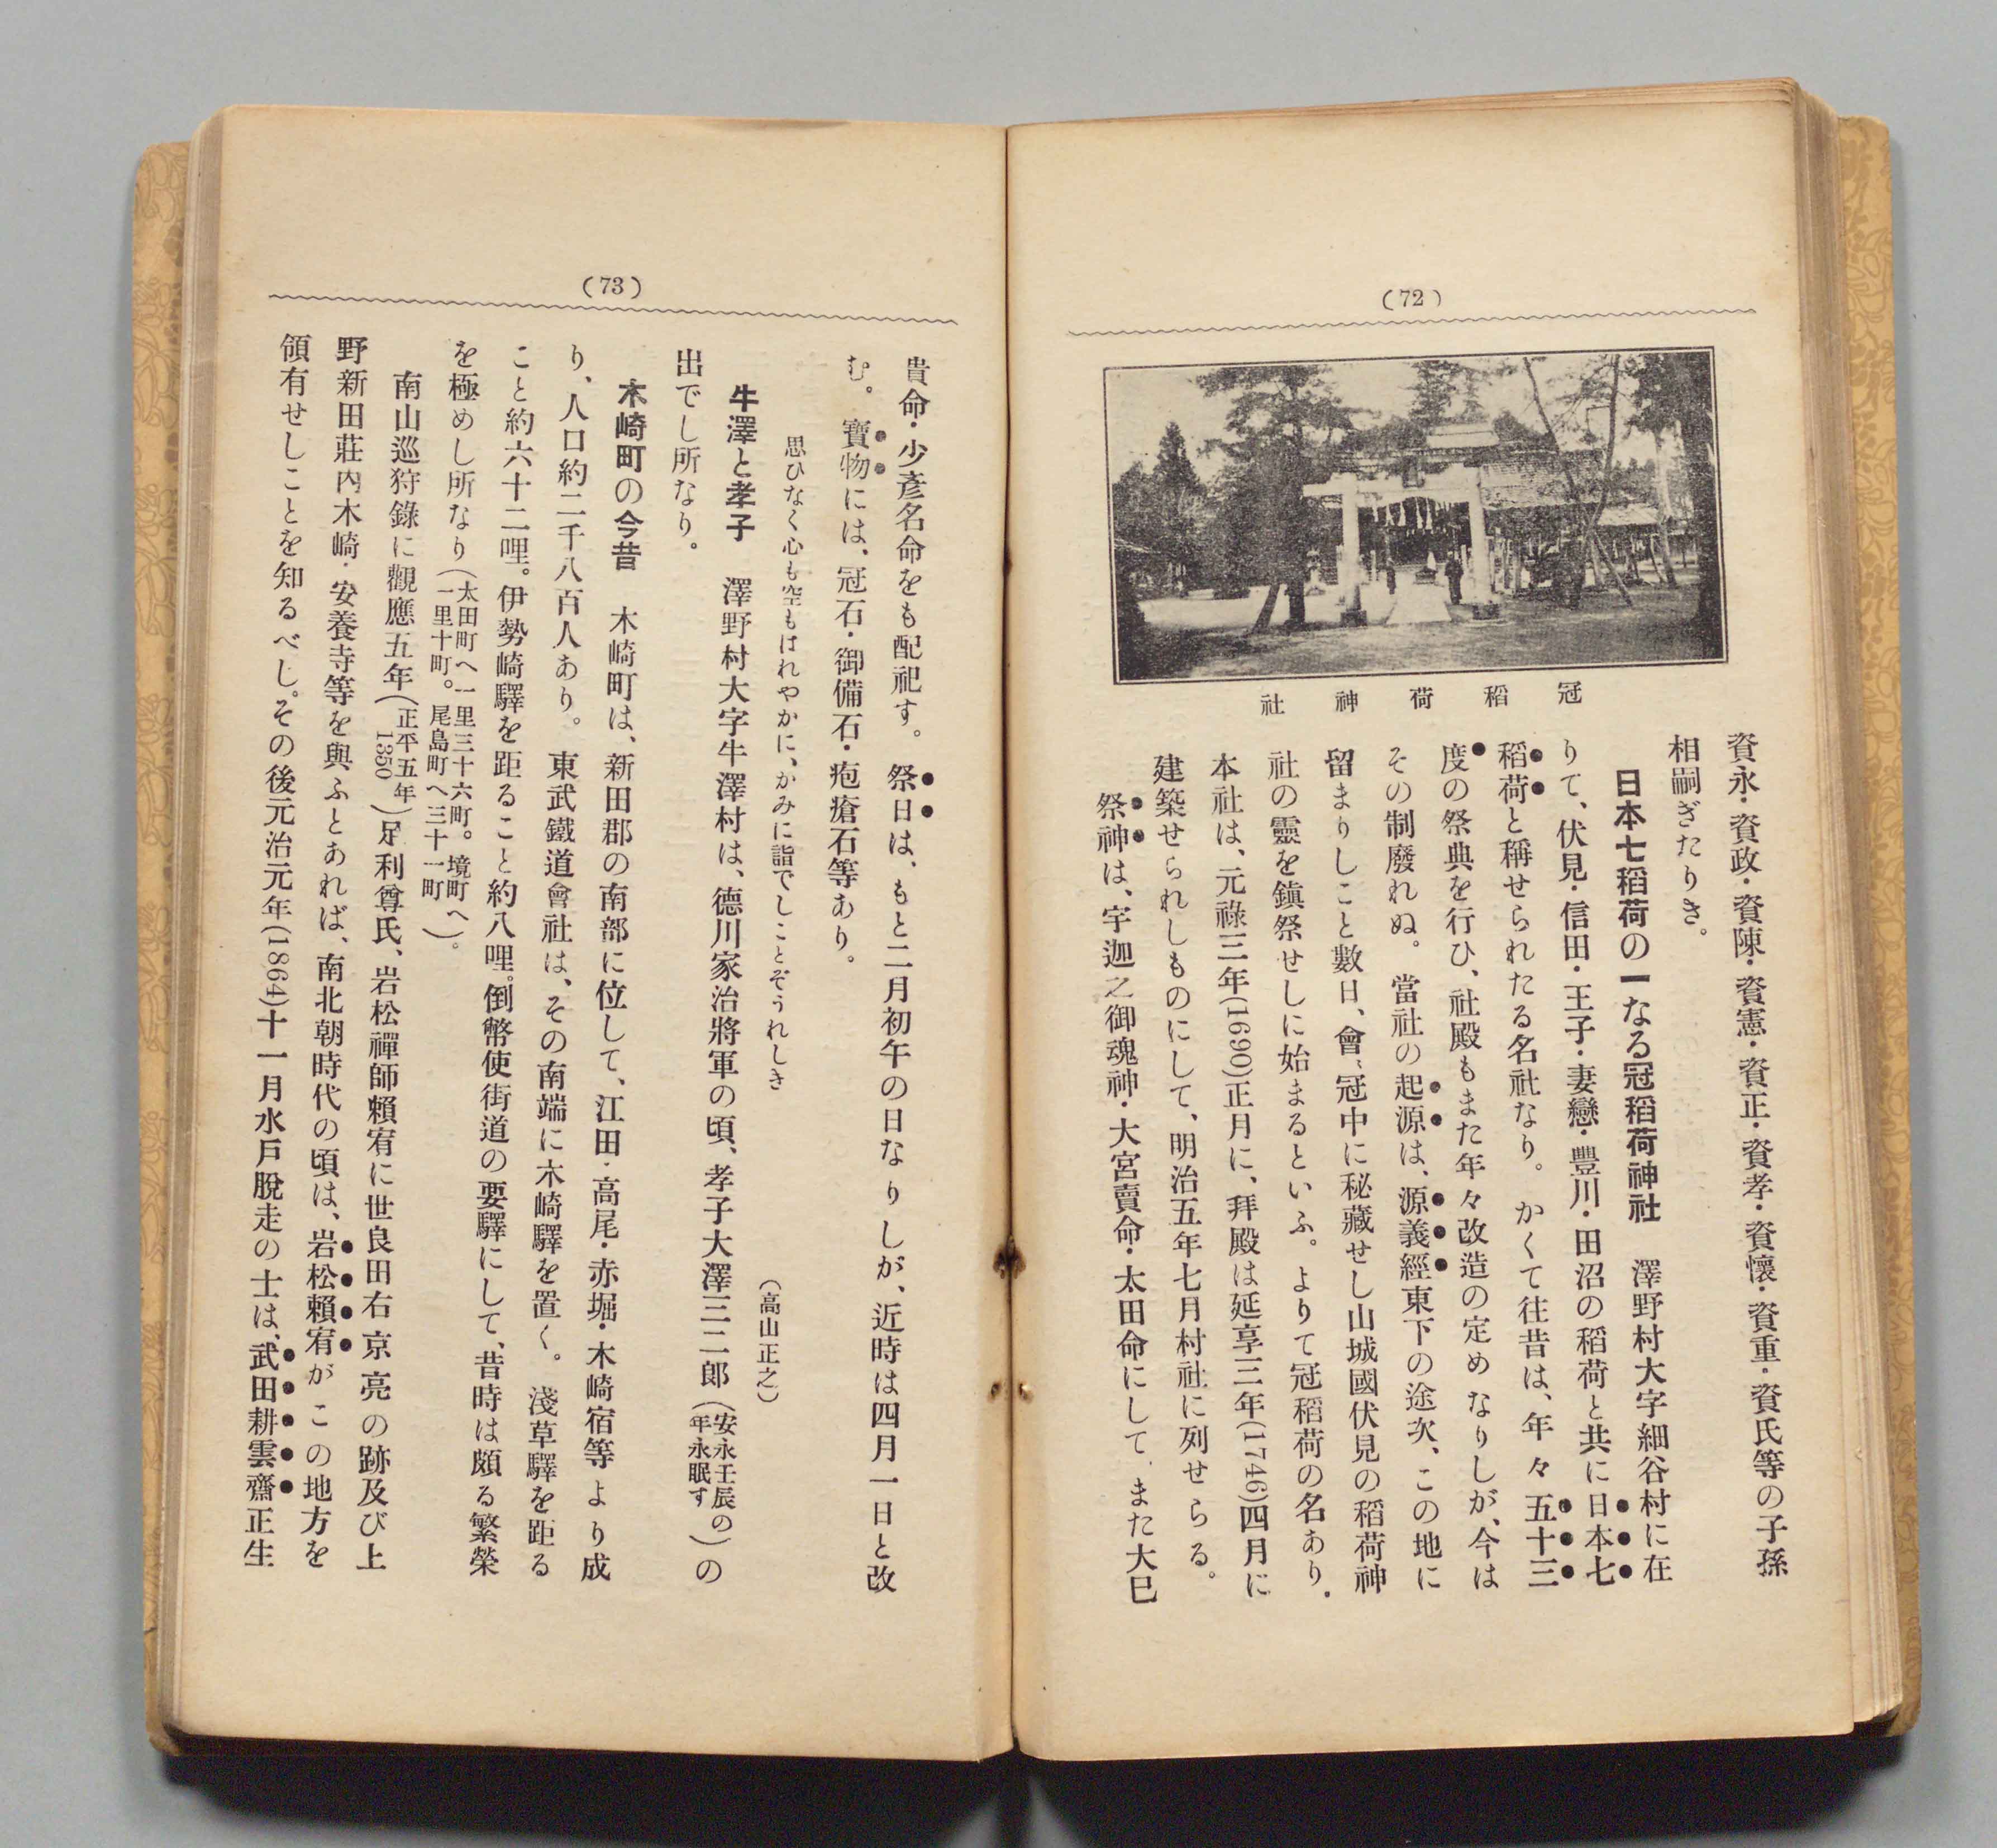 (72)
冠稻荷神社
資永・資政・資陳・資憲・資正・資孝・資懷・資重・資氏等の子孫
相嗣ぎたりき。
日本七稻荷の一なる冠稻荷神社　澤野村大字細谷村に在
りて、伏見・信田・王子・妻戀・豐川・田沼の稻荷と共に日本七
稻荷と稱せられたる名社なり。かくて往昔は、年々五十三
度の祭典を行ひ、社殿もまた年々改造の定めなりしが、今は
その制廢れぬ。當社の起源は、源義經東下の途次、この地に
留まりしこと數日、會〻冠中に秘藏せし山城國伏見の稻荷神
社の靈を鎭祭せしに始まるといふ。よりて冠稻荷の名あり。
本社は、元祿三年(1690)正月に、拜殿は延享三年(1746)四月に
建築せられしものにして、明治五年七月村社に列せらる。
祭神は、宇迦之御魂神・大宮賣命・太田命にして、また大巳
(73)
貴命・少彥名命をも配祀す。祭日は、もと二月初午の日なりしが、近時は四月一日と改
む。寶物には、冠石・御備石・疱瘡石等あり。
思ひなく心も空もはれやかに、かみに詣でしことぞうれしき
(高山正之)
牛澤と孝子　澤野村大字牛澤村は、德川家治將軍の頃、孝子大澤三二郎(安永壬辰の年永眠す)の
出でし所なり。
木崎町の今昔　木崎町は、新田郡の南部に位して、江田・高尾・赤堀・木崎宿等より成
り、人口約二千八百人あり。東武鐵道會社は、その南端に木崎驛を置く。淺草驛を距る
こと約六十二哩。伊勢崎驛を距ること約八哩。倒幣使街道の要驛にして、昔時は頗る繁榮
を極めし所なり(太田町へ一里三十六町。境町へ一里十町。尾島町へ三十一町)。
南山巡狩錄に觀應五年(正平五年1350)足利尊氏、岩松禪師賴宥に世良田右京亮の跡及び上
野新田莊內木崎・安養寺等を與ふとあれば、南北朝時代の頃は、岩松賴宥がこの地方を
領有せしことを知るべし。その後元治元年(1864)十一月水戶脫走の士は、武田耕雲齋正生